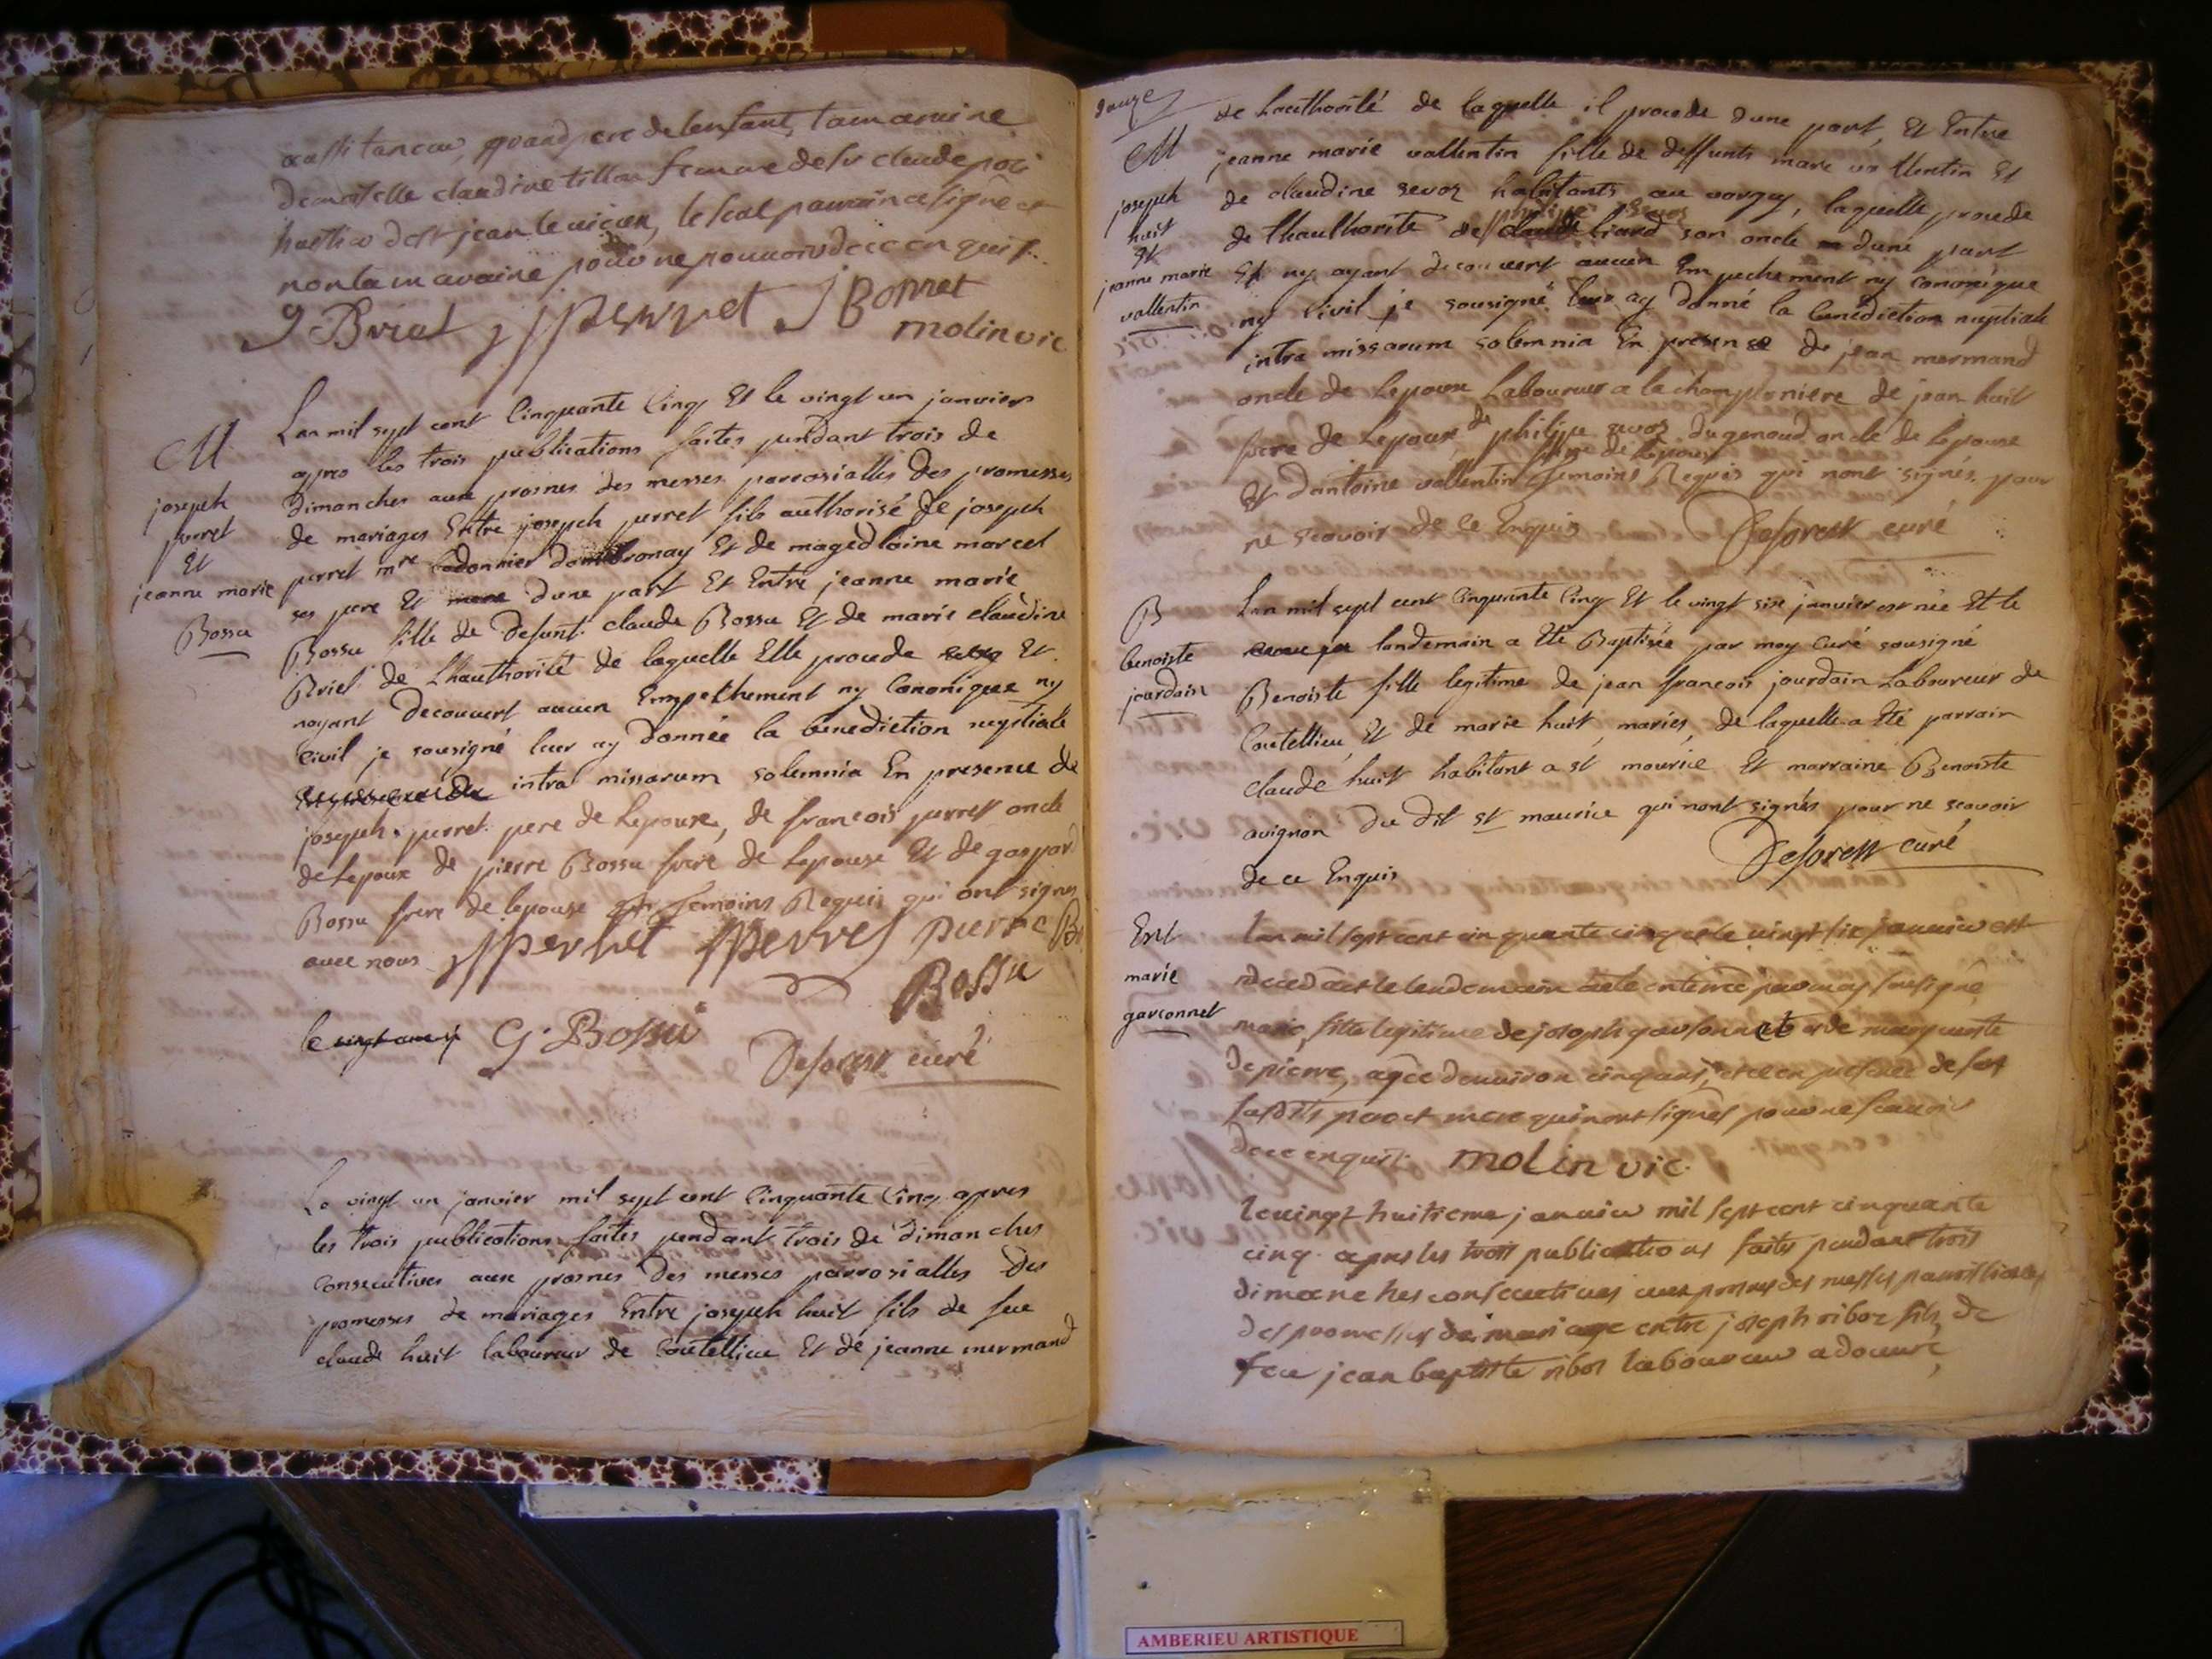 grand pere de lenfant, la maraine
demoiselle claudine femme de sr claude
jean le vieux, le seul parrain a signé et
non la maraine pour ne pouvoir de ce enquis
J Bonnet
molin vic
M
joseph
perret
Et
jeanne marie
Bossu
Lan mil sept cent Cinquante Cinq Et le vingt un janvier
apres les trois publications faites pendant trois de
dimanches aux prosnes des messes parrosialles des promesses
de mariages Entre joseph perret fils authorisé de joseph
perret mre Cordonnier dambronay Et de magedlaine marcel
ses pere Et mere dune part Et Entre jeanne marie
Bossu fille de defunt claude Bossu Et de marie claudine
Briel de Lhauthorité de laquelle Elle procede Et
nayant decouvert aucun Empechement ny Canonique ny
Civil je sousigné leur ay donnée la benediction nuptiale
intra missarum solemnia En presence de
joseph perret pere de Lepoux, de francois perret oncle
de Lepoux de pierre Bossu frere de Lepouse Et de gaspard
Bossu frere de lepouse temoins Requis qui ont signés
avec nous perret perret pierre
Bossu
le G. Bossu
Deforest curé
Le vingt un janvier mil sept cent Cinquante Cinq apres
les trois publications faites pendant trois de dimanches
Consecutives aux prosnes des messes parrosialles des
promesses de mariages Entre joseph huit fils de feu
claude huit laboureur de Coutellieu Et de jeanne mermand
douze
M
joseph
huit
Et
jeanne marie
vallentin
de Lauthorité de laquelle il procede dune part, Et Entre
jeanne marie vallentin fille de deffunts marc vallentin Et
de claudine sevoz habitants au vorgey, laquelle procede
philippe sevoz
de lhauthorité de son oncle dune part
Et ny ayant decouvert aucun Empechement ny canonique
ny Civil je sousigné leur ay donné la benediction nuptiale
intra missarum solemnia En presense de jean mermand
oncle de Lepoux Laboureur a la championiere de jean huit
frere de Lepoux de philippe sevoz dugenoud oncle de Lepouse
frere de Lepouse
Et dantoine vallentin temoins Requis qui nont signés pour
ne scavoir de ce Enquis Deforest curé
B
benoiste
jourdain
Lan mil sept cent Cinquante Cinq Et le vingt six janvier est née Et le
landemain a Eté Baptisée par moy Curé sousigné
Benoiste fille legitime de jean francois jourdain Laboureur de
Coutellieu Et de marie huit, mariés, de laquelle a Eté parrain
claude huit habitant a st maurice Et marraine Benoiste
avignon du dit st maurice qui nont signés pour ne scavoir
de ce Enquis Deforest curé
Ent
marie
garconnet
Lan mil sept cent cinquante cinq et le vingt six janvier est
decedee et le lendemain a ete enterrée par moy soussigné
marie, fille legitime de joseph garsonnet et de marguerite
depierre, agée denviron cinq ans, et ce en presence de ses
susdits pere et mere qui nont signés pour ne scavoir
de ce enquis. molin vic.
le vingt huitieme janvier mil sept cent cinquante
cinq apres les trois publications faites pendant trois
dimanches consecutives aux prosnes des messes paroissiales
des promesses de mariage entre joseph riboz fils de
feu jean baptiste riboz laboureur a douvre,
AMBERIEU ARTISTIQUE